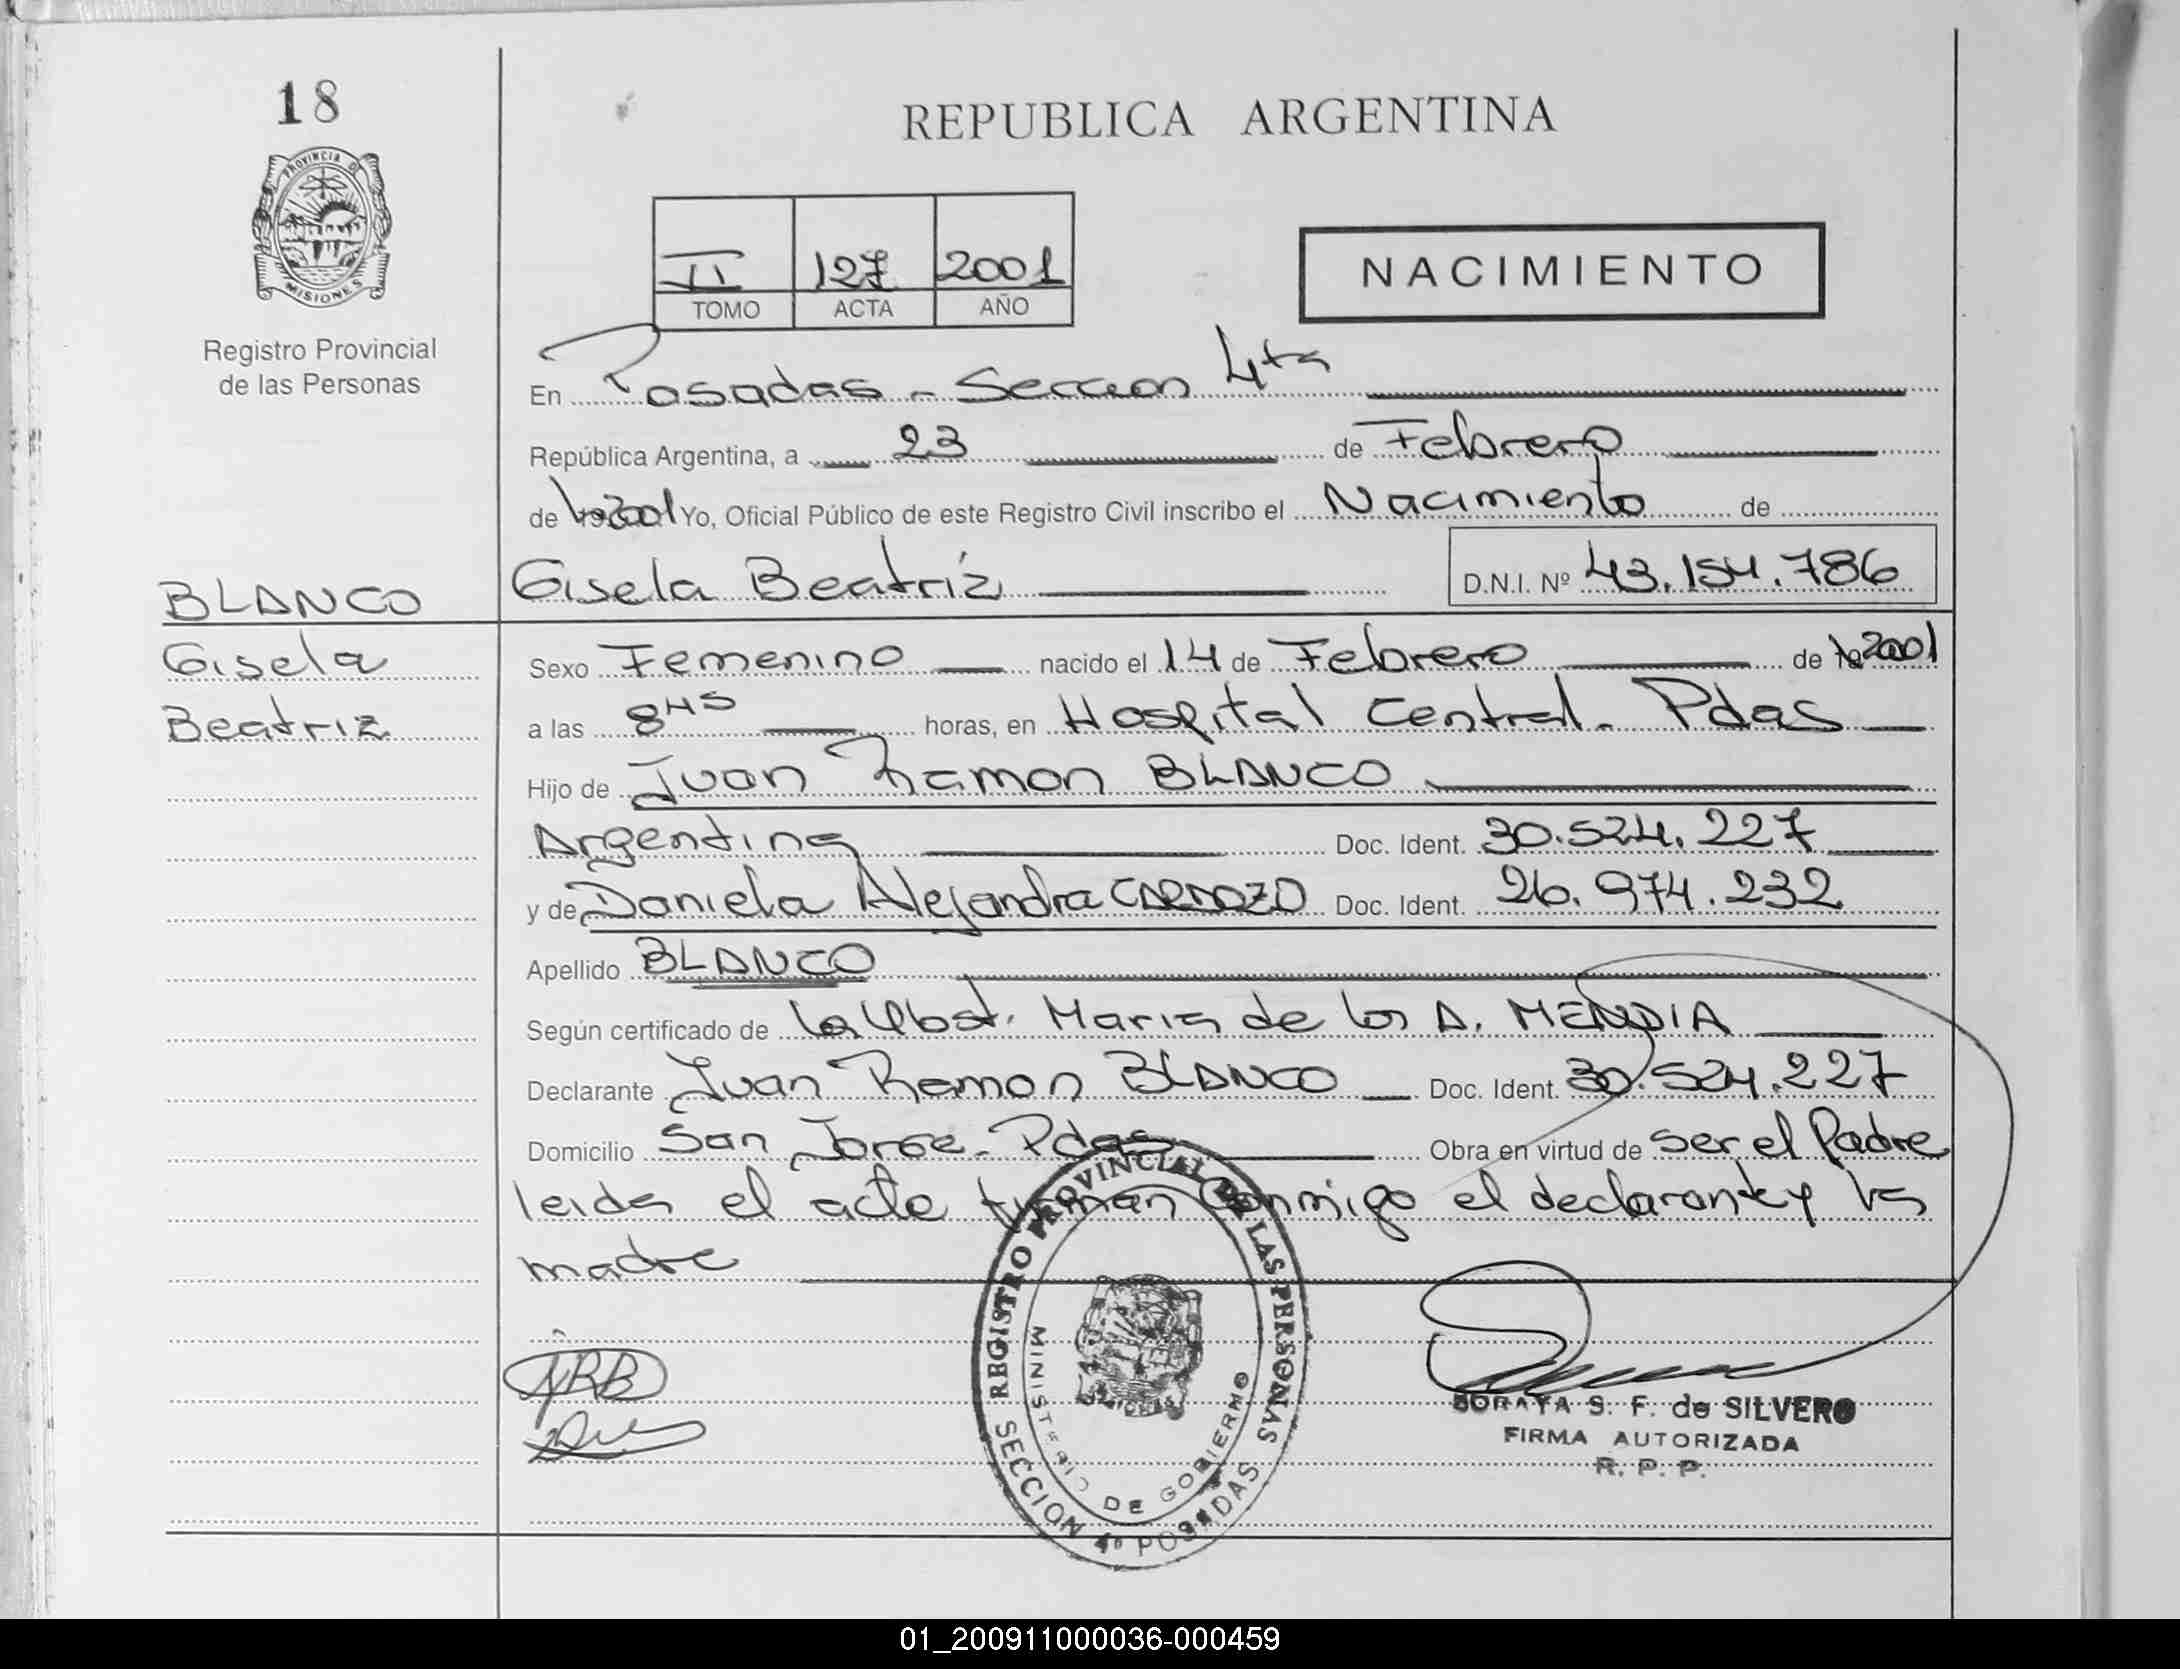 18
REPUBLICA ARGENTINA
PROVINCIA DE
MISIONES
II 127 2001
TOMO ACTA AÑO
NACIMIENTO
Registro Provincial
de las Personas
En Posadas - Seccion 4ta
República Argentina, a 23 de Febrero
de 2001 Yo, Oficial Público de este Registro Civil inscribo el Nacimiento de
BLANCO
Gisela Beatriz D.N.I. Nº 43.154.786
Gisela
Sexo Femenino nacido el 14 de Febrero de 2001
Beatriz
a las 8 45 horas, en Hospital Central - Pdas
Hijo de Juan Ramon BLANCO
Argentina Doc. Ident. 30.524.227
y de Daniela Alejandra CARDOZO Doc. Ident. 26.974.232
Apellido BLANCO
Según certificado de la Obst. Maria de los A. MENDIA
Declarante Juan Ramon BLANCO Doc. Ident. 30.524.227
Domicilio San Jorge - Pdas Obra en virtud de ser el Padre
leida el acta firman conmigo el declarante y la
madre
REGISTRO PROVINCIAL DE LAS PERSONAS
MINISTERIO DE GOBIERNO
MISIONES
SECCION 4º POSADAS
JRB
SORAYA S. F. de SILVERO
FIRMA AUTORIZADA
R. P. P.
01_200911000036-000459